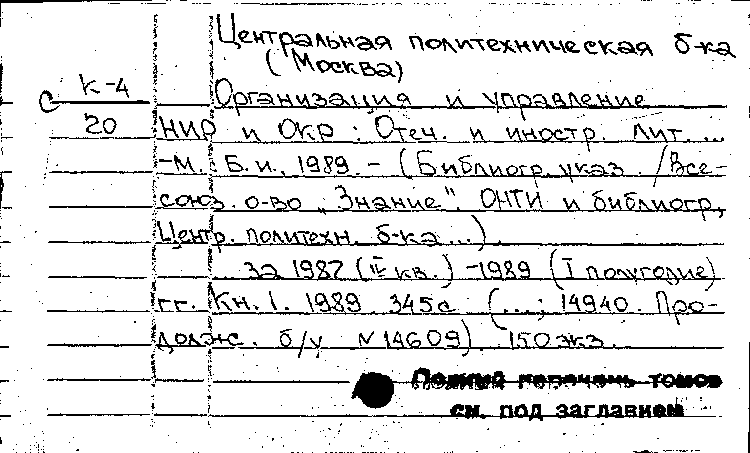 Центральная политехническая б-ка
(Москва)
К-4
С
20
Организация и управление
НИР и ОКР: Отеч. и иностр. лит...
-М.: Б.и., 1989. - (Библиогр. указ. / Все-
союз. о-во "Знание". ОНТИ и библиогр,
Центр. политехн. б-ка...).
... За 1987 (IV кв.) -1989 (I полугодие)
гг. Кн. 1. 1989. 345с. (...; 14940. Про-
долж. б/у N14609). 150экз.
Полный перечень томов
см. под заглавием